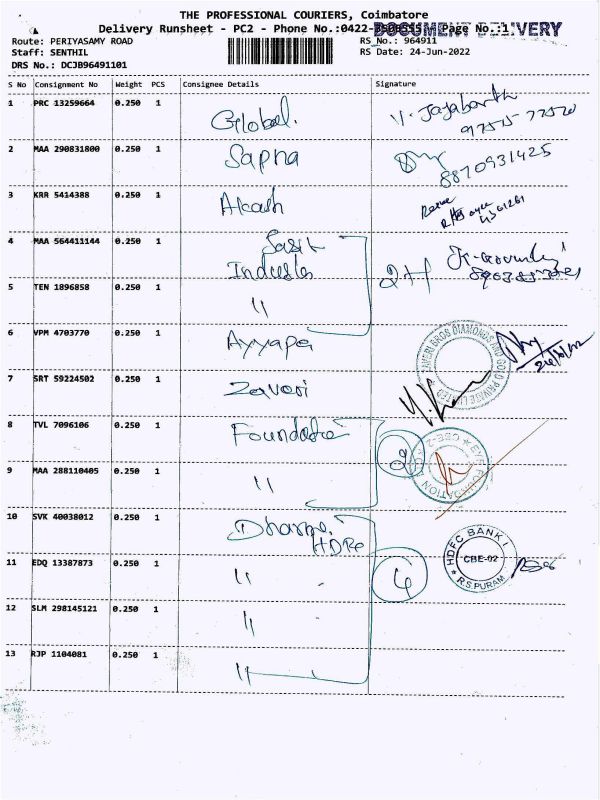 THE PROFESSIONAL COURIERS, Coimbatore
Delivery Runsheet - PC2 - Phone No.:0422- Page No.:1
DOCUMENT DELIVERY
Route: PERIYASAMY ROAD
RS No.: 964911
Staff: SENTHIL
RS Date: 24-Jun-2022
DRS No.: DCJB96491101
S No Consignment No Weight PCS Consignee Details Signature
1 PRC 13259664 0.250 1 Global.
97575-77520
2 MAA 290831800 0.250 1 Sapna 8870931425
3 KRR 5414388 0.250 1 Akash
4 MAA 564411144 0.250 1
5 TEN 1896858 0.250 1 "
6 VPM 4703770 0.250 1 Ayyapa
7 SRT 59224502 0.250 1 Zaveri
ZAVERI BROS DIAMONDS AND GOLD PRIVATE LIMITED
8 TVL 7096106 0.250 1 2
EYE FOUNDATION CBE-2
9 MAA 288110405 0.250 1 "
10 SVK 40038012 0.250 1
HDFC BANK CBE-02 R.S.PURAM
11 EDQ 13387873 0.250 1 " 4
12 SLM 298145121 0.250 1 "
13 RJP 1104081 0.250 1 "